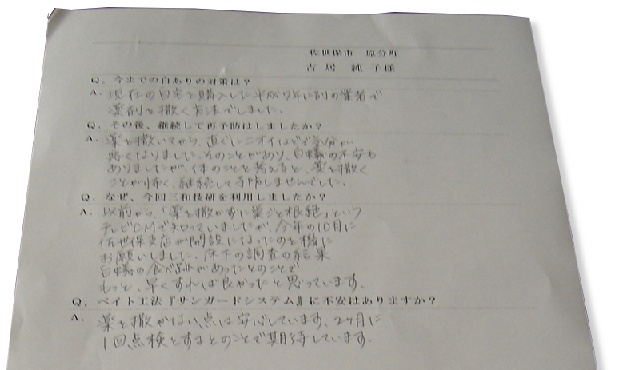 佐世保市 原分町
古居 純子様
Q、今までの白ありの対策は?
A、現在の自宅を購入した平成9年に別の業者で
薬剤を撒く方法でしました。
Q、その後、継続して再予防はしましたか?
A、薬を撒いてから、直ぐにニオイなどで気分が
悪くなりました。そのことがあり、白蟻の不安も
ありましたが、体のことを考えると、薬を撒く
ことが怖く、継続して予防しませんでした。
Q、なぜ、今回三和技研を利用しましたか?
A、以前から、「薬を撒かずに巣ごと根絶」という
テレビCMで知っていましたが、今年の10月に
佐世保支店が開設になったのを機に
お願いしました。床下の調査の結果
白蟻の食べ跡があったとのことで
もっと、早くすれば良かったと思っています。
Q、ベイト工法『サンガードシステム』に不安はありますか?
A、薬を撒かない点は安心しています。2ヶ月に
1回点検をするとのことで期待しています。